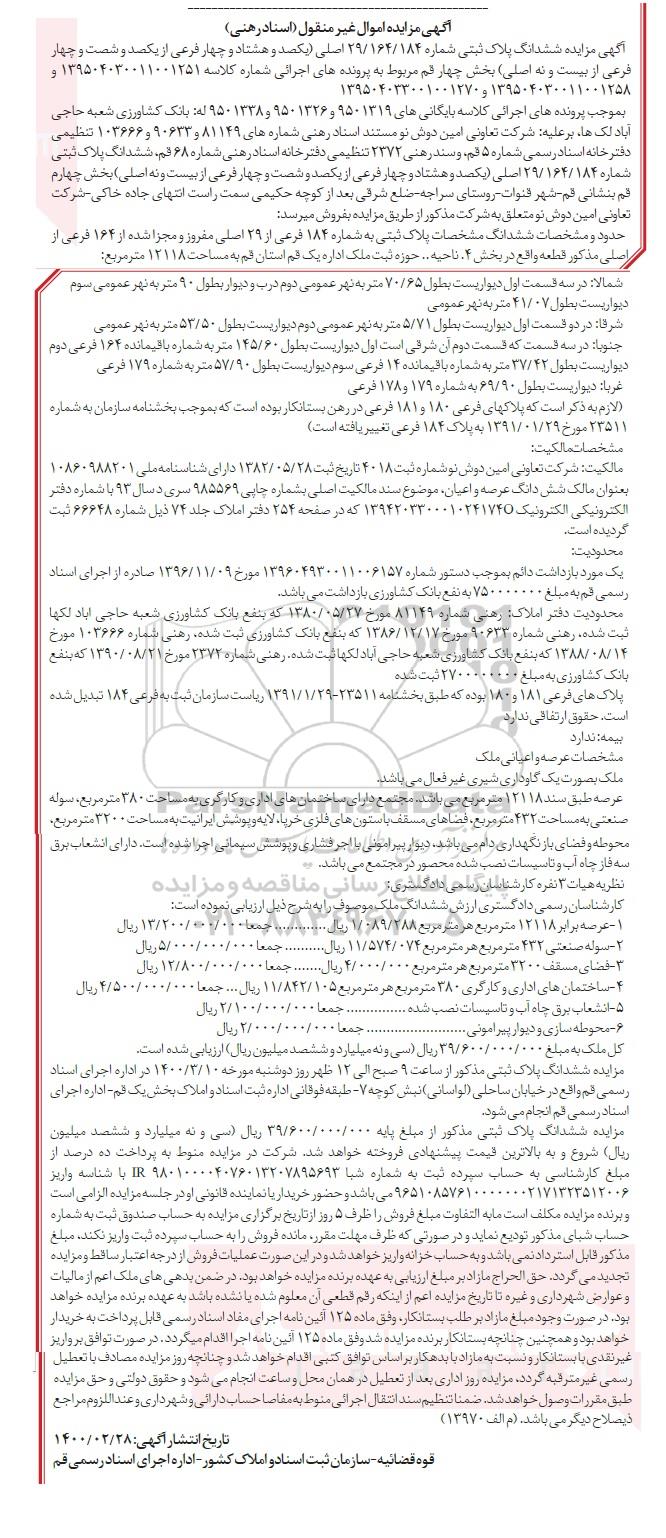 آگهی مزایده اموال غیر منقول (اسناد رهنی)
آگهی مزایده ششدانگ پلاک ثبتی شماره ۲۹/۱۶۴/۱۸۴ اصلی (یکصد و هشتاد و چهار فرعی از یکصد و شصت و چهار
فرعی از بیست و نه اصلی) بخش چهار قم مربوط به پرونده های اجرائی شماره کلاسه ۱۳۹۵۰۴۰۳۰۰۱۱۰۰۱۲۵۱ و
۱۳۹۵۰۴۰۳۰۰۱۱۰۰۱۲۵۸ و ۱۳۹۵۰۴۰۳۳۰۰۱۰۰۱۲۷۰
بموجب پرونده های اجرائی کلاسه بایگانی های ۹۵۰۱۳۱۹ و ۹۵۰۱۳۲۶ و ۹۵۰۱۳۳۸ له: بانک کشاورزی شعبه حاجی
آباد لک ها، برعلیه: شرکت تعاونی امین دوش نو مستند اسناد رهنی شماره های ۸۱۱۴۹ و ۹۰۶۳۳ و ۱۰۳۶۶۶ تنظیمی
دفترخانه اسناد رسمی شماره ۵ قم، و سند رهنی ۲۳۷۲ تنظیمی دفترخانه اسناد رهنی شماره ۶۸ قم، ششدانگ پلاک ثبتی
شماره ۲۹/۱۶۴/۱۸۴ اصلی (یکصد و هشتاد و چهار فرعی از یکصد و شصت و چهار فرعی از بیست و نه اصلی) بخش چهارم
قم بنشانی قم-شهر قنوات-روستای سراجه-ضلع شرقی بعد از کوچه حکیمی سمت راست انتهای جاده خاکی-شرکت
تعاونی امین دوش نو متعلق به شرکت مذکور از طریق مزایده بفروش میرسد:
حدود و مشخصات ششدانگ مشخصات پلاک ثبتی به شماره ۱۸۴ فرعی از ۲۹ اصلی مفروز و مجزا شده از ۱۶۴ فرعی از
اصلی مذکور قطعه واقع در بخش ۴. ناحیه.. حوزه ثبت ملک اداره یک قم استان قم به مساحت ۱۲۱۱۸ مترمربع:
شمالا: در سه قسمت اول دیواریست بطول ۷۰/۶۵ متر به نهر عمومی دوم درب و دیوار بطول ۹۰ متر به نهر عمومی سوم
دیواریست بطول ۴۱/۰۷ متر به نهر عمومی
شرقا: در دو قسمت اول دیواریست بطول ۵/۷۱ متر به نهر عمومی دوم دیواریست بطول ۵۳/۵۰ متر به نهر عمومی
جنوبا: در سه قسمت که قسمت دوم آن شرقی است اول دیواریست بطول ۱۴۵/۶۰ متر به شماره باقیمانده ۱۶۴ فرعی دوم
دیواریست بطول ۳۷/۴۲ متر به شماره باقیمانده ۱۴ فرعی سوم دیواریست بطول ۵۷/۹۰ متر به شماره ۱۷۹ فرعی
غربا: دیواریست بطول ۶۹/۹۰ به شماره ۱۷۹ و ۱۷۸ فرعی
(لازم به ذکر است که پلاکهای فرعی ۱۸۰ و ۱۸۱ فرعی در رهن بستانکار بوده است که بموجب بخشنامه سازمان به شماره
۲۳۵۱۱ مورخ ۱۳۹۱/۰۱/۲۹ به پلاک ۱۸۴ فرعی تغییر یافته است)
مشخصات مالکیت:
مالکیت: شرکت تعاونی امین دوش نو شماره ثبت ۴۰۱۸ تاریخ ثبت ۱۳۸۲/۰۵/۲۸ دارای شناسنامه ملی ۱۰۸۶۰۹۸۸۲۰۱
بعنوان مالک شش دانگ عرصه و اعیان، موضوع سند مالکیت اصلی بشماره چاپی ۹۸۵۵۶۹ سری د سال ۹۳ با شماره دفتر
الکترونیکی الکترونیک ۱۳۹۴۲۰۳۳۰۰۰۱۰۲۴۱۷۴۰ که در صفحه ۲۵۴ دفتر املاک جلد ۷۴ ذیل شماره ۶۶۶۴۸ ثبت
گردیده است.
محدودیت:
یک مورد بازداشت دائم بموجب دستور شماره ۱۳۹۶۰۴۹۳۰۰۱۱۰۰۶۱۵۷ مورخ ۱۳۹۶/۱۱/۰۹ صادره از اجرای اسناد
رسمی قم به مبلغ ۷۵۰۰۰۰۰۰۰۰ به نفع بانک کشاورزی بازداشت می باشد.
محدودیت دفتر املاک: رهنی شماره ۸۱۱۴۹ مورخ ۱۳۸۰/۰۵/۲۷ که بنفع بانک کشاورزی شعبه حاجی اباد لکها
ثبت شده، رهنی شماره ۹۰۶۳۳ مورخ ۱۳۸۶/۱۲/۱۷ که بنفع بانک کشاورزی ثبت شده، رهنی شماره ۱۰۳۶۶۶ مورخ
۱۳۸۸/۰۸/۱۴ که بنفع بانک کشاورزی شعبه حاجی آباد لکها ثبت شده. رهنی شماره ۲۳۷۲ مورخ ۱۳۹۰/۰۸/۲۱ که بنفع
بانک کشاورزی به مبلغ ۲۷۰۰۰۰۰۰۰۰ ثبت شده
پلاک های فرعی ۱۸۱ و ۱۸۰ بوده که طبق بخشنامه ۲۳۵۱۱-۱۳۹۱/۱/۲۹ ریاست سازمان ثبت به فرعی ۱۸۴ تبدیل شده
است. حقوق ارتفاقی ندارد
بیمه: ندارد
مشخصات عرصه و اعیانی ملک
ملک بصورت یک گاوداری شیری غیر فعال می باشد.
عرصه طبق سند ۱۲۱۱۸ مترمربع می باشد. مجتمع دارای ساختمان های اداری و کارگری به مساحت ۳۸۰ مترمربع، سوله
صنعتی به مساحت ۴۳۲ مترمربع، فضاهای مسقف با ستون های فلزی خرپا، لایه و پوشش ایرانیت به مساحت ۳۲۰۰ مترمربع،
محوطه و فضای باز نگهداری دام می باشد. دیوار پیرامونی با اجر فشاری و پوشش سیمانی اجرا شده است. دارای انشعاب برق
سه فاز چاه آب و تاسیسات نصب شده محصور در مجتمع می باشد.
نظریه هیات ۳ نفره کارشناسان رسمی دادگستری:
کارشناسان رسمی دادگستری ارزش ششدانگ ملک موصوف را به شرح ذیل ارزیابی نموده است:
۱-عرصه برابر ۱۲۱۱۸ مترمربع هر مترمربع ۱/۰۸۹/۲۸۸ ریال............. جمعا ۱۳/۲۰۰/۰۰۰/۰۰۰ ریال
۲-سوله صنعتی ۴۳۲ مترمربع هر مترمربع ۱۱/۵۷۴/۰۷۴ ریال.......... جمعا ۵/۰۰۰/۰۰۰/۰۰۰ ریال
۳-فضای مسقف ۳۲۰۰ مترمربع هر مترمربع ۴/۰۰۰/۰۰۰ ریال....... جمعا ۱۲/۸۰۰/۰۰۰/۰۰۰ ریال
۴-ساختمان های اداری و کارگری ۳۸۰ مترمربع هر مترمربع ۱۱/۸۴۲/۱۰۵ ریال ... جمعا ۴/۵۰۰/۰۰۰/۰۰۰ ریال
۵-انشعاب برق چاه آب و تاسیسات نصب شده ............... جمعا ۲/۱۰۰/۰۰۰/۰۰۰ ریال
۶-محوطه سازی و دیوار پیرامونی......................... جمعا ۲/۰۰۰/۰۰۰/۰۰۰ ریال
کل ملک به مبلغ ۳۹/۶۰۰/۰۰۰/۰۰۰ ریال (سی و نه میلیارد و ششصد میلیون ریال) ارزیابی شده است.
مزایده ششدانگ پلاک ثبتی مذکور از ساعت ۹ صبح الی ۱۲ ظهر روز دوشنبه مورخه ۱۴۰۰/۳/۱۰ در اداره اجرای اسناد
رسمی قم واقع در خیابان ساحلی (لواسانی) نبش کوچه ۷- طبقه فوقانی اداره ثبت اسناد و املاک بخش یک قم- اداره اجرای
اسناد رسمی قم انجام می شود.
مزایده ششدانگ پلاک ثبتی مذکور از مبلغ پایه ۳۹/۶۰۰/۰۰۰/۰۰۰ ریال (سی و نه میلیارد و ششصد میلیون
ریال) شروع و به بالاترین قیمت پیشنهادی فروخته خواهد شد. شرکت در مزایده منوط به پرداخت ده درصد از
مبلغ کارشناسی به حساب سپرده ثبت به شماره شبا IR ۹۸۰۱۰۰۰۰۴۰۷۶۰۱۳۲۰۷۸۹۵۶۹۳ با شناسه واریز
۹۶۵۱۰۸۵۷۶۱۰۰۰۰۰۰۰۲۱۷۱۳۲۳۵۱۲۰۰۶ می باشد و حضور خریدار یا نماینده قانونی او در جلسه مزایده الزامی است
و برنده مزایده مکلف است مابه التفاوت مبلغ فروش را ظرف ۵ روز از تاریخ برگزاری مزایده به حساب صندوق ثبت به شماره
حساب شبای مذکور تودیع نماید و در صورتی که ظرف مهلت مقرر، مانده فروش را به حساب سپرده ثبت واریز نکند، مبلغ
مذکور قابل استرداد نمی باشد و به حساب خزانه واریز خواهد شد و در این صورت عملیات فروش از درجه اعتبار ساقط و مزایده
تجدید می گردد. حق الحراج مازاد بر مبلغ ارزیابی به عهده برنده مزایده خواهد بود. در ضمن بدهی های ملک اعم از مالیات
و عوارض شهرداری و غیره تا تاریخ مزایده اعم از اینکه رقم قطعی آن معلوم شده یا نشده باشد به عهده برنده مزایده خواهد
بود. در صورت وجود مبلغ مازاد بر طلب بستانکار، وفق ماده ۱۲۵ آئین نامه اجرای مفاد اسناد رسمی قابل پرداخت به خریدار
خواهد بود و همچنین چنانچه بستانکار برنده مزایده شد وفق ماده ۱۲۵ آئین نامه اجرا اقدام میگردد. در صورت توافق بر واریز
غیر نقدی با بستانکار و نسبت به مازاد با بدهکار بر اساس توافق کتبی اقدام خواهد شد و چنانچه روز مزایده مصادف با تعطیل
رسمی غیر مترقبه گردد، مزایده روز اداری بعد از تعطیل در همان محل و ساعت انجام می شود و حقوق دولتی و حق مزایده
طبق مقررات وصول خواهد شد. ضمنا تنظیم سند انتقال اجرائی منوط به مفاصا حساب دارائی و شهرداری و عنداللزوم مراجع
ذیصلاح دیگر می باشد. (م الف ۱۳۹۷۰)
تاریخ انتشار آگهی: ۱۴۰۰/۰۲/۲۸
قوه قضائیه-سازمان ثبت اسناد و املاک کشور-اداره اجرای اسناد رسمی قم